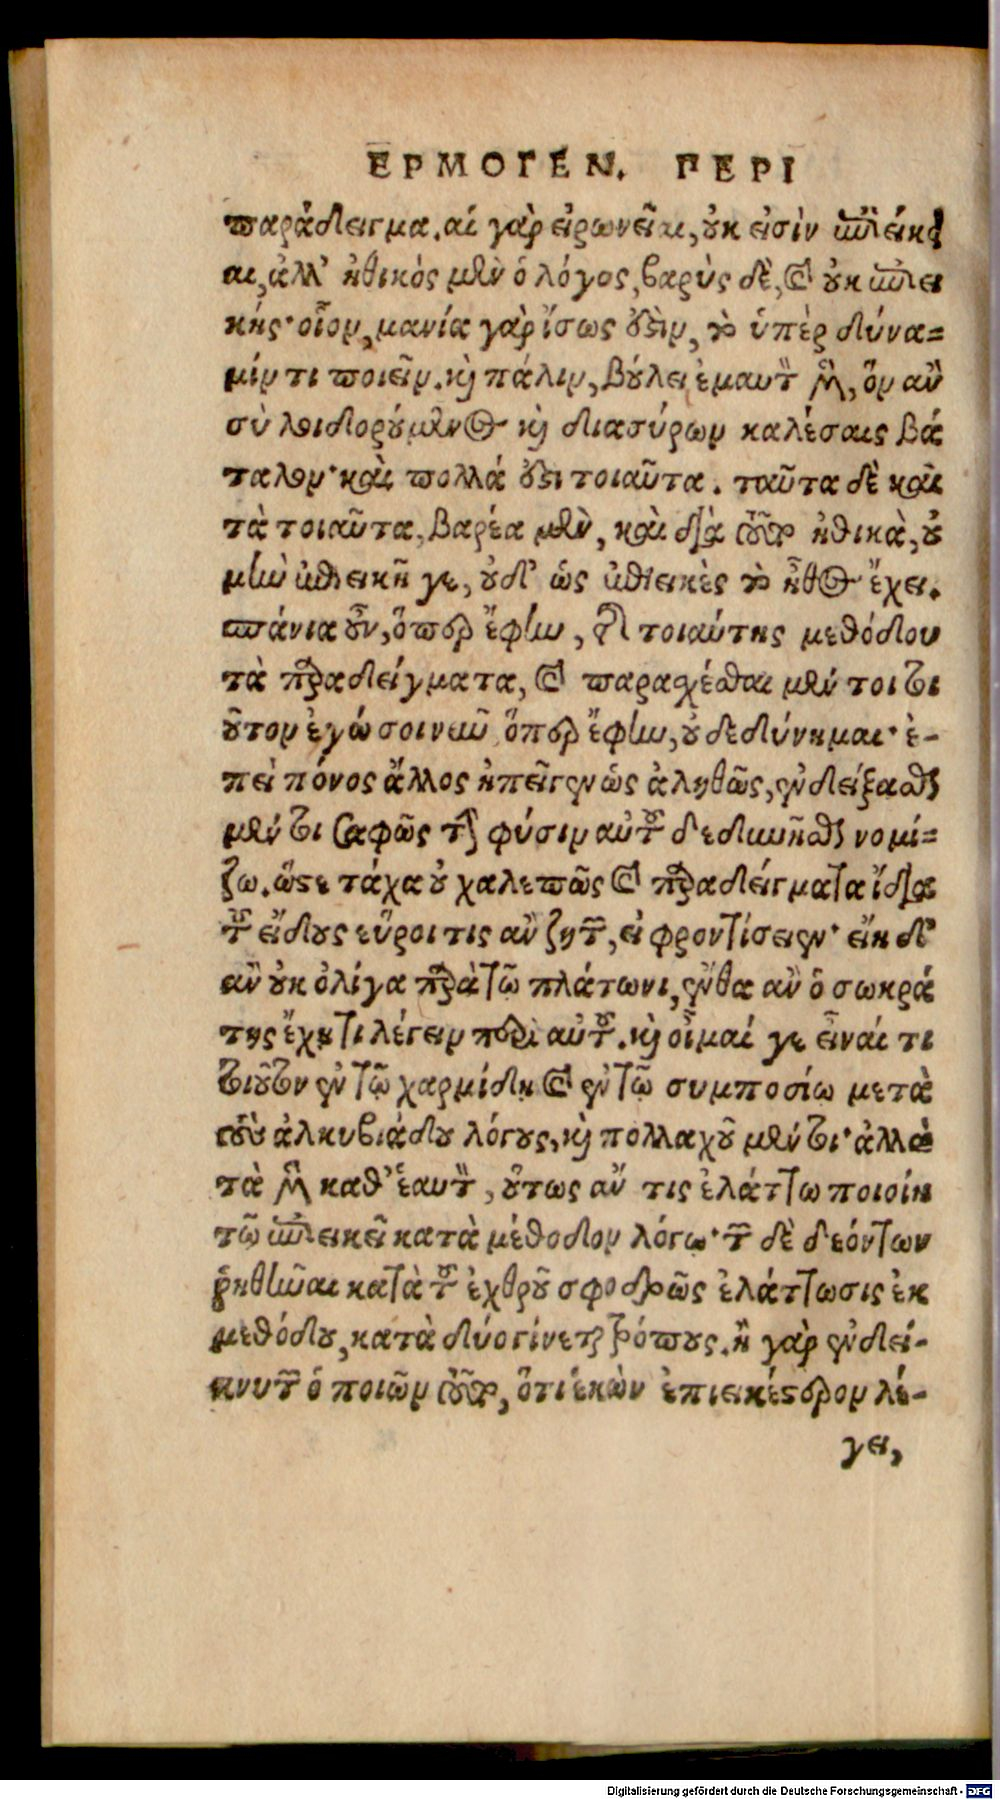 ΕΡΜΟΓΕΝ. ΠΕΡΙ
παράδειγμα. αἱ γὰρ εἰρωνεῖαι, οὐκ εἰσὶν ἐπιεική
αι, ἀλλ' ἠθικὸς μὲν ὁ λόγος, βαρὺς δὲ, καὶ οὐκ ἐπιει
κής· οἷον, μανία γὰρ ἴσως ὅξιν, τὸ ὑπὲρ δύνα=
μίν τι ποιεῖν. καὶ πάλιν, βούλει ἐμαυτὸν μὲν, ὃν ἂν
σὺ λοιδορούμενος καὶ διασύρων καλέσαις βά
ταλον· καὶ πολλά ὅξι τοιαῦτα. ταῦτα δὲ καὶ
τὰ τοιαῦτα, βαρέα μὲν, καὶ διὰ τοῦτο ἠθικὰ, οὐ
μὴν ἐπιεικῆ γε, οὐδ' ὡς ἐπιεικὲς τὸ ἦθος ἔχει.
σπάνια οὖν, ὅπερ ἔφην, τῆς τοιαύτης μεθόδου
τὰ παραδείγματα, καὶ παραχέσθαι μέντοι
ἐγώ σοι νῦν ὅπερ ἔφην, οὐ δεδύνημαι· ἐ-
πεὶ πόνος ἄλλος ἤπειγεν ὡς ἀληθῶς, ἐνδείξασθαι
μέντοι σαφῶς τὴν φύσιν αὐτοῦ δεδυνῆσθαι νομί=
ζω. ὥστε τάχα οὐ χαλεπῶς καὶ παραδείγματα ἴδια
τοῦ εἴδους εὕροι τις ἂν ζητῶν, εἰ φροντίσειεν· εἴη δ'
ἂν οὐκ ὀλίγα παρὰ τῷ πλάτωνι, ἔνθα ἂν ὁ σωκρά
της ἔχῃ τι λέγειν περὶ αὑτοῦ. καὶ οἶμαί γε εἶναί τι
τοιοῦτον ἐν τῷ χαρμίδῃ καὶ ἐν τῷ συμποσίω μετὰ
τοὺς ἀλκυβιάδου λόγους, καὶ πολλαχοῦ μέντοι· ἀλλὰ
τὰ μὲν καθ' ἑαυτὸν, οὕτως ἄν τις ἐλάττω ποιοίη
τῷ ἐπιεικεῖ κατὰ μέθοδον λόγω· τῶν δὲ δεόντων
ῥηθῆναι κατὰ τοῦ ἐχθροῦ σφοδρῶς ἐλάττωσις ἐκ
μεθόδου, κατὰ δύο γίνεται τρόπους. ἢ γὰρ ἐνδεί-
κνυται ὁ ποιῶν τοῦτο, ὅτι ἑκὼν ἐπιεικέστερον λέ-
γει,
Digitalisierung gefördert durch die Deutsche Forschungsgemeinschaft - DFG